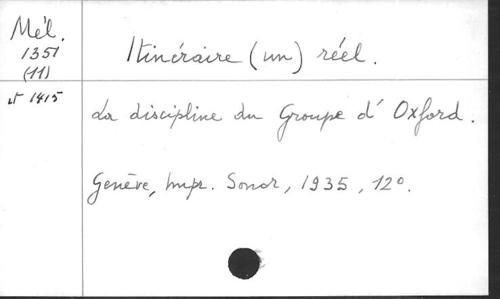 Mél.
1351
(11)
et 1415
Itinéraire (un) réel.
La discipline du Groupe d' Oxford.
Genève, Impr. Sonor, 1935, 12°.